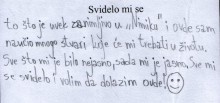 Svidelo mi se
to što je uvek zanimljivo u „Nimiku" i ovde sam
naučio mnogo stvari koje će mi trebati u životu.
Sve što mi je bilo nejasno, sada mi je jasno. Sve mi
se svidelo i volim da dolazim ovde!